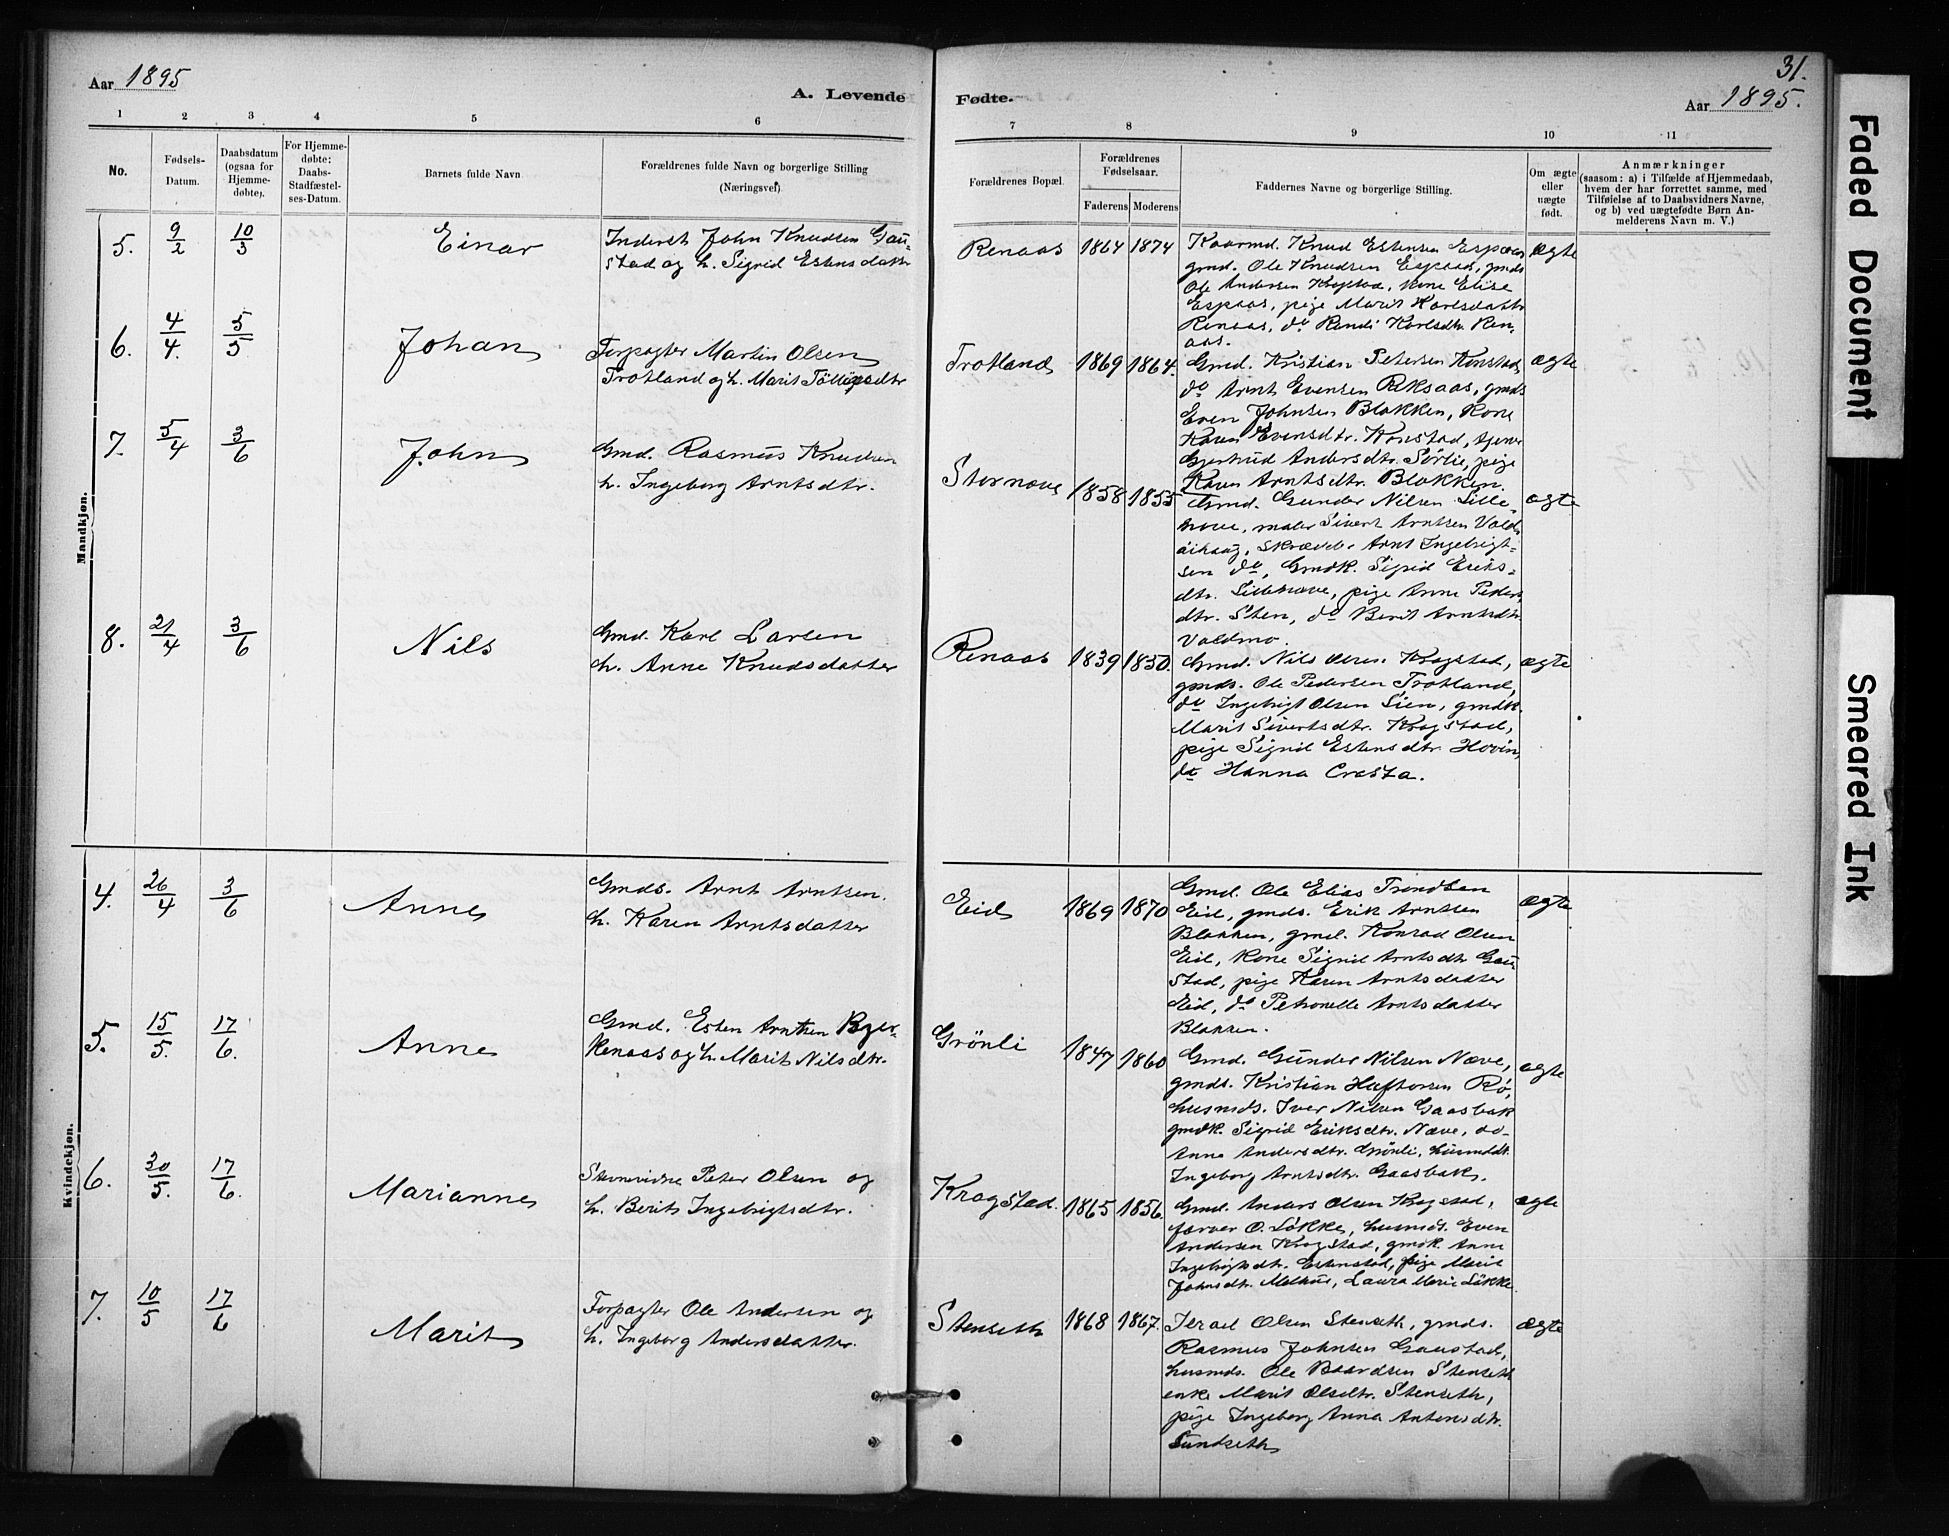 Aar 1895
A. Levende
1 2 3 4 5 6
No.
Fødsels-
Datum.
Daabsdatum
(ogsaa for
Hjemme-
døbte).
For Hjemme-
døbte:
Daabs-
Stadfæstel-
ses-Datum.
Barnets fulde Navn
Forældrenes fulde Navn og borgerlige Stilling
(Næringsvei)
Mandkjøn.
5. 9/2 10/3 Einar
Inderst John Knudsen Gau-
stad og h. Sigrid Estensdatter
6. 4/4. 5/5 Johan
Forpagter Martin Olsen
Trotland og h. Marit
7. 5/4 3/6 John
Gmd. Rasmus Knudsen
h. Ingeborg Arntsdtr.
8. 21/4 3/6 Nils
Gmd. Karl Larsen
h. Anne Knudsdatter
Kvindekjøn.
4. 26/4 3/6 Anne
Gmds. Arnt Arntsen.
h. Karen Arntsdatter
5. 15/5. 17/6. Anne
Gmd. Esten Arntsen Bjer-
kenaas og h. Marit Nilsdtr.
6. 30/5. 17/6. Marianne
Peter Olsen og
h. Berit Ingebrigtsdtr.
7. 10/5 17/6 Marit
Forpagter Ole Andersen og
h. Ingeborg Andersdatter.
31.
Fødte.
Aar 1895.
7 8 9 10 11
Forældrenes Bopæl.
Forældrenes
Fødselsaar.
Faderens Moderens
Faddernes Navne og borgerlige Stilling.
Om ægte
eller
uægte
født.
Anmærkninger
(saasom: a) i Tilfælde af Hjemmedaab,
hvem der har forrettet samme, med
Tilføielse af to Daabsvidners Navne,
og b) ved uægtefødte Børn An-
melderens Navn m. V.)
Renaas 1864 1874 Kaarmd. Knud Estensen Espaas ægte
gmd. Ole Knudsen Espaas, gmds
Ole Andersen Krogstad, kone Elise
Espaas, pige Marit Karlsdatter
Renaas, do Randi Karlsdtr. Ren-
aas.
Trotland 1869 1864. Gmd. Kristian Petersen Konstad ægte
do Arnt Evensen Reksaas, gmds
Even Johnsen Blokken, Kone
Karen Evensdtr. Konstad, tjener
Gjertrud Andersdtr. Sørlie, pige
Karen Arntsdtr. Blokken.
Stornove 1858 1855 Gmd. Gunder Nilsen Lille- ægte
nove, maler Sivert Arntsen
Arnt Ingebrigt-
sen do, Gmdk. Sigrid Eriks-
dtr. Lillenove, pige Anne Peders
dtr. Sten, do Berit Arntsdtr
Voldmo.
Renaas 1839 1850. Gmd. Nils Krogstad, ægte
gmds. Ole Pedersen Trotland,
do Ingebrigt Olsen Lien, gmdk.
Marit Sivertsdtr. Krogstad,
pige Sigrid Estensdtr. Hovin,
do Hanna Cresta.
Eid 1869 1870 Gmd. Ole Elias Trondsen ægte
Eid, gmds. Erik Arntsen
Blokken, gmd. Konrad Olsen
Eid, kone Sigrid Arntsdtr Gau-
stad, pige Karen Arntsdatter
Eid, do Petronelle Arntsdatter
Blokken.
Grönli 1847 1860 Gmd. Gunder Nilsen Næve, ægte
gmds. Kristian Haftorsen Rø,
husmds. Iver Nilsen Gaasbak
gmdk. Sigrid Eriksdtr. Næve, do
Anne Andersdtr. Grönli,
Ingeborg Arntsdtr. Gaasbak.
Krogstad. 1865 1856. Gmd. Anders Olsen Krogstad, ægte
farver O. Løkke, husmds. Even
Andersen Krogstad, gmdk. Anne
Ingebrigtsdtr. Estenstad, pige Marit
Johnsdtr. Melhus, Laura Marie Løkke
Stenseth 1868 1867. Israel Olsen Stenseth, gmds. ægte
Rasmus Johnsen Gaustad,
husmds. Ole Baardsen Stenseth
enke Marit Olsdtr. Stenseth,
pige Ingeborg Anna Antonsdtr.
Sundseth
Faded Document
Smeared Ink